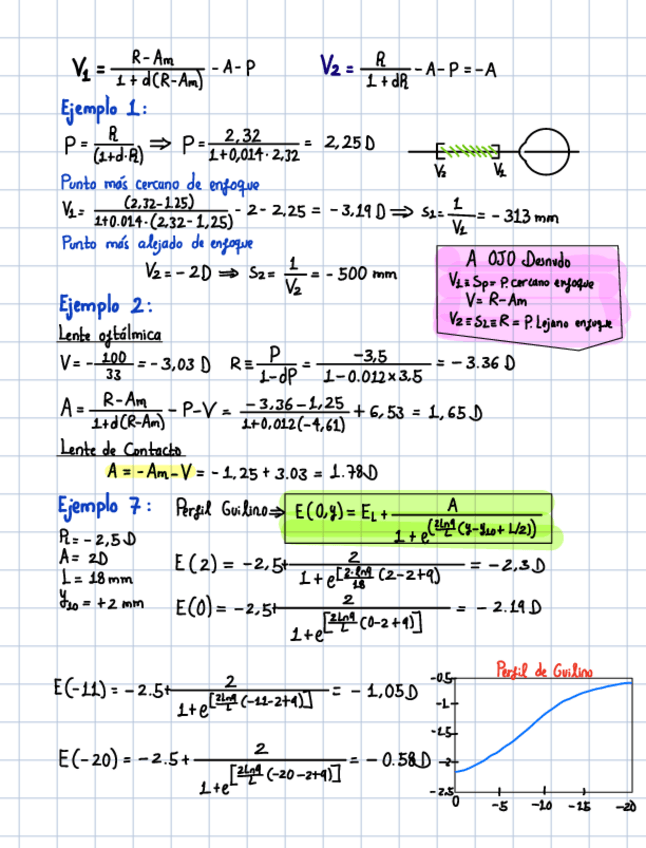 V₁ = (R-Am)/(1+d(R-Am)) - A - P
V₂ = R/(1+dR) - A - P = -A
Ejemplo 1:
P = R/(1+d·R) ⇒ P = 2,32/(1+0,014·2,32) = 2,25 D
V₂ V₁
Punto más cercano de enfoque
V₁ = (2,32-1.25)/(1+0.014·(2,32-1,25)) - 2 - 2,25 = -3,19 D ⇒ S₁ = 1/V₁ = -313 mm
Punto más alejado de enfoque
V₂ = -2D ⇒ S₂ = 1/V₂ = -500 mm
A OJO Desnudo
V₁ ≡ Sp = P. cercano enfoque
V = R-Am
V₂ ≡ S₂ ≡ R = P. Lejano enfoque
Ejemplo 2:
Lente oftálmica
V = -100/33 = -3,03 D R ≡ P/(1-dP) = -3,5/(1-0.012×3.5) = -3.36 D
A = (R-Am)/(1+d(R-Am)) - P - V = (-3,36-1,25)/(1+0,012(-4,61)) + 6,53 = 1,65 D
Lente de Contacto
A = -Am-V = -1,25 + 3.03 = 1.78D
Ejemplo 7: Perfil Guilino ⇒ E(0,y) = E_L + A/(1+e^((2Ln9/L)(y-y₁₀+L/2)))
R = -2,5 D
A = 2D
L = 18 mm
y₁₀ = +2 mm
E(2) = -2,5+ 2/(1+e^[(2·Ln9/18)(2-2+9)]) = -2,3D
E(0) = -2,5+ 2/(1+e^[(2Ln9/L)(0-2+9)]) = -2.19 D
E(-11) = -2.5+ 2/(1+e^[(2Ln9/L)(-11-2+9)]) = -1,05D
E(-20) = -2.5+ 2/(1+e^[(2Ln9/L)(-20-2+9)]) = -0.58D
Perfil de Guilino
-0.5
-1
-1.5
-2
-2.5
0 -5 -10 -15 -20